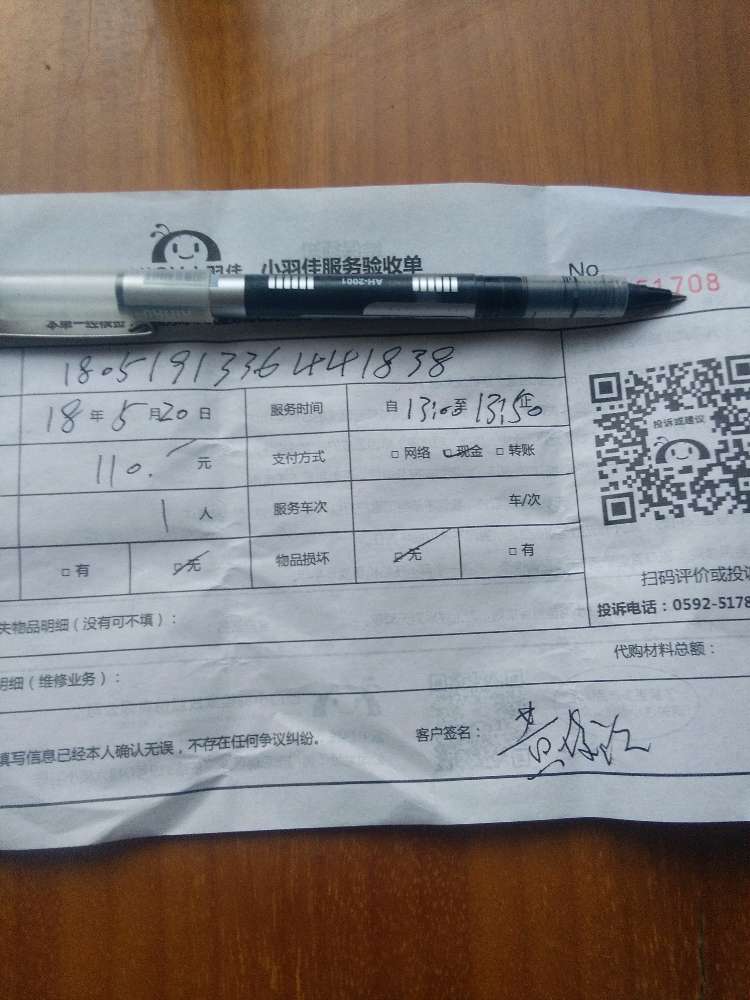 小羽佳 小羽佳服务验收单 No 51708
AH-2001
180519133644 1838
18 年 5 月 20 日 服务时间 自 13:00 至 13:50 止
投诉或建议
110. 元 支付方式 □ 网络 □ 现金 □ 转账
1 人 服务车次 车/次
□ 有 □ 无 物品损坏 □ 无 □ 有
扫码评价或投诉
投诉电话：0592-5178
失物品明细（没有可不填）：
代购材料总额：
明细（维修业务）：
填写信息已经本人确认无误，不存在任何争议纠纷。 客户签名：黄